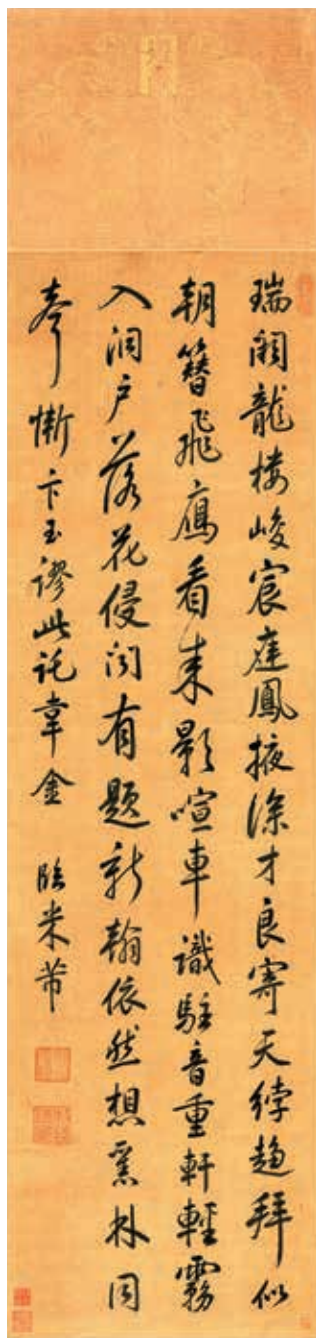 瑞闕龍樓峻宸庭鳳掖深才良寄天綍趨拜似
朝簪飛鴈看來影喧車識駐音重軒輕霧
入洞户落花侵聞有題新翰依然想舊林同
聲慚卞玉謬此託韋金 臨米芾